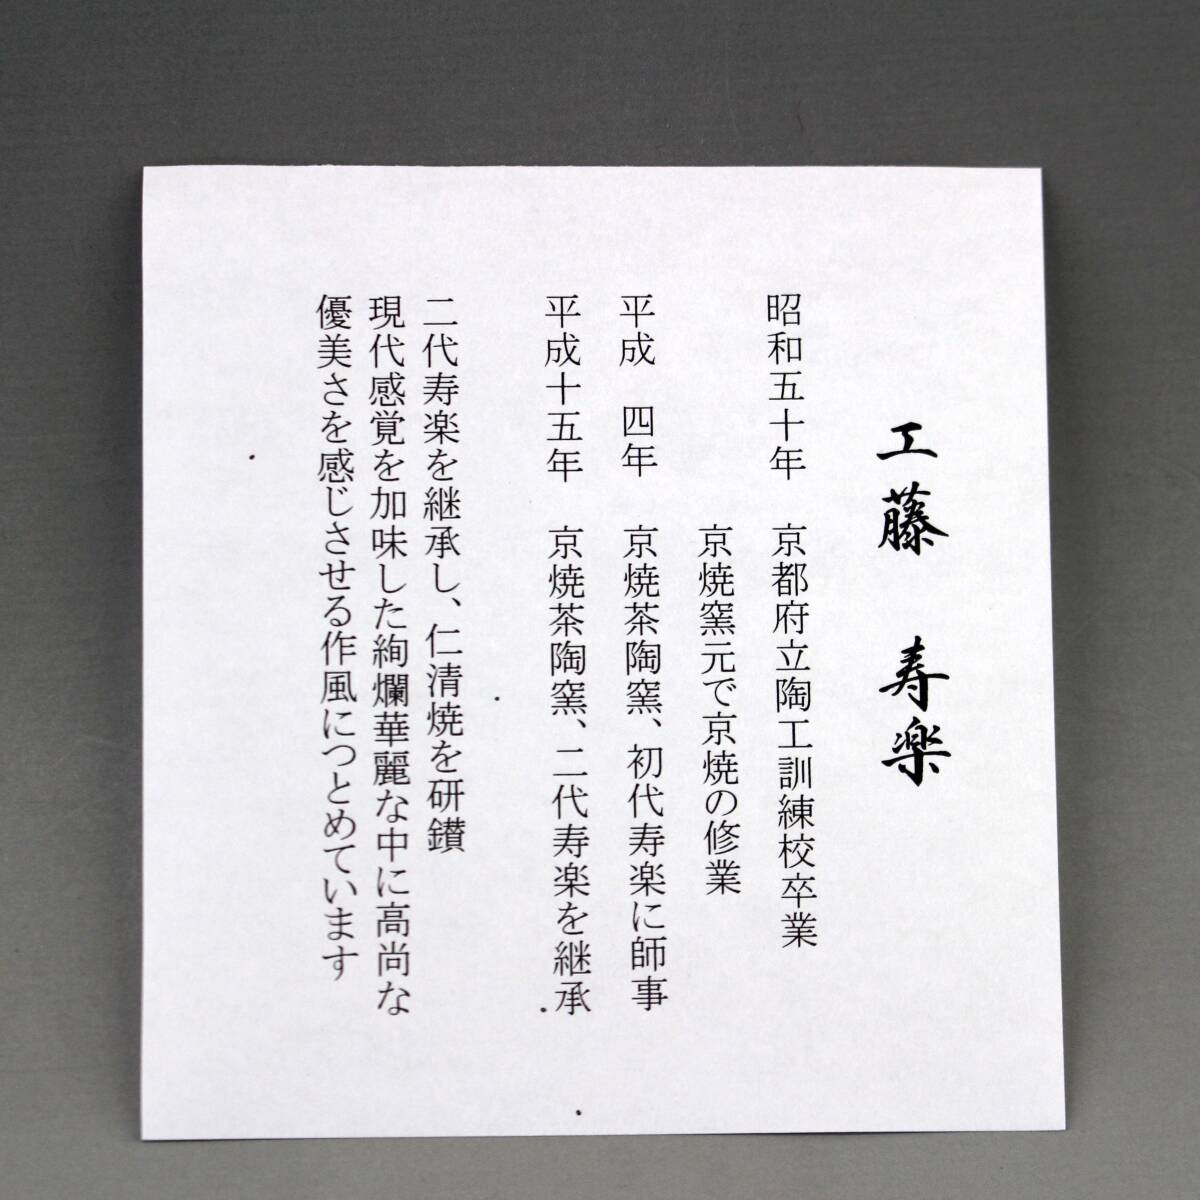 工藤　寿楽
昭和五十年　京都府立陶工訓練校卒業
京焼窯元で京焼の修業
平成　四年　京焼茶陶窯、初代寿楽に師事
平成十五年　京焼茶陶窯、二代寿楽を継承
二代寿楽を継承し、仁清焼を研鑚
現代感覚を加味した絢爛華麗な中に高尚な
優美さを感じさせる作風につとめています